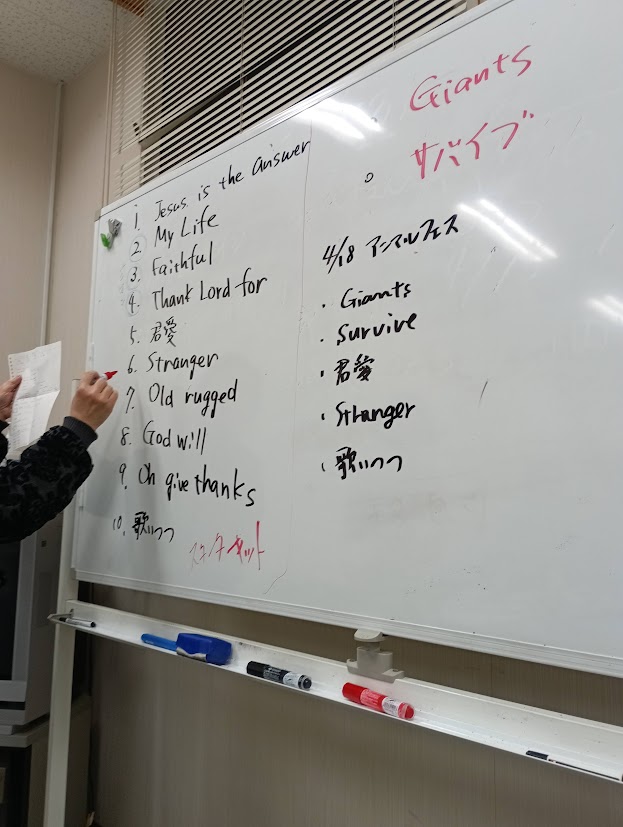 1. Jesus is the answer
2. My Life
3. Faithful
4. Thank Lord for
5. 君愛
6. Stranger
7. Old rugged
8. God will
9. Oh give thanks
10. 歌いつつ
Giants
サバイブ
4/18 アニマルフェス
・Giants
・Survive
・君愛
・Stranger
・歌いつつ